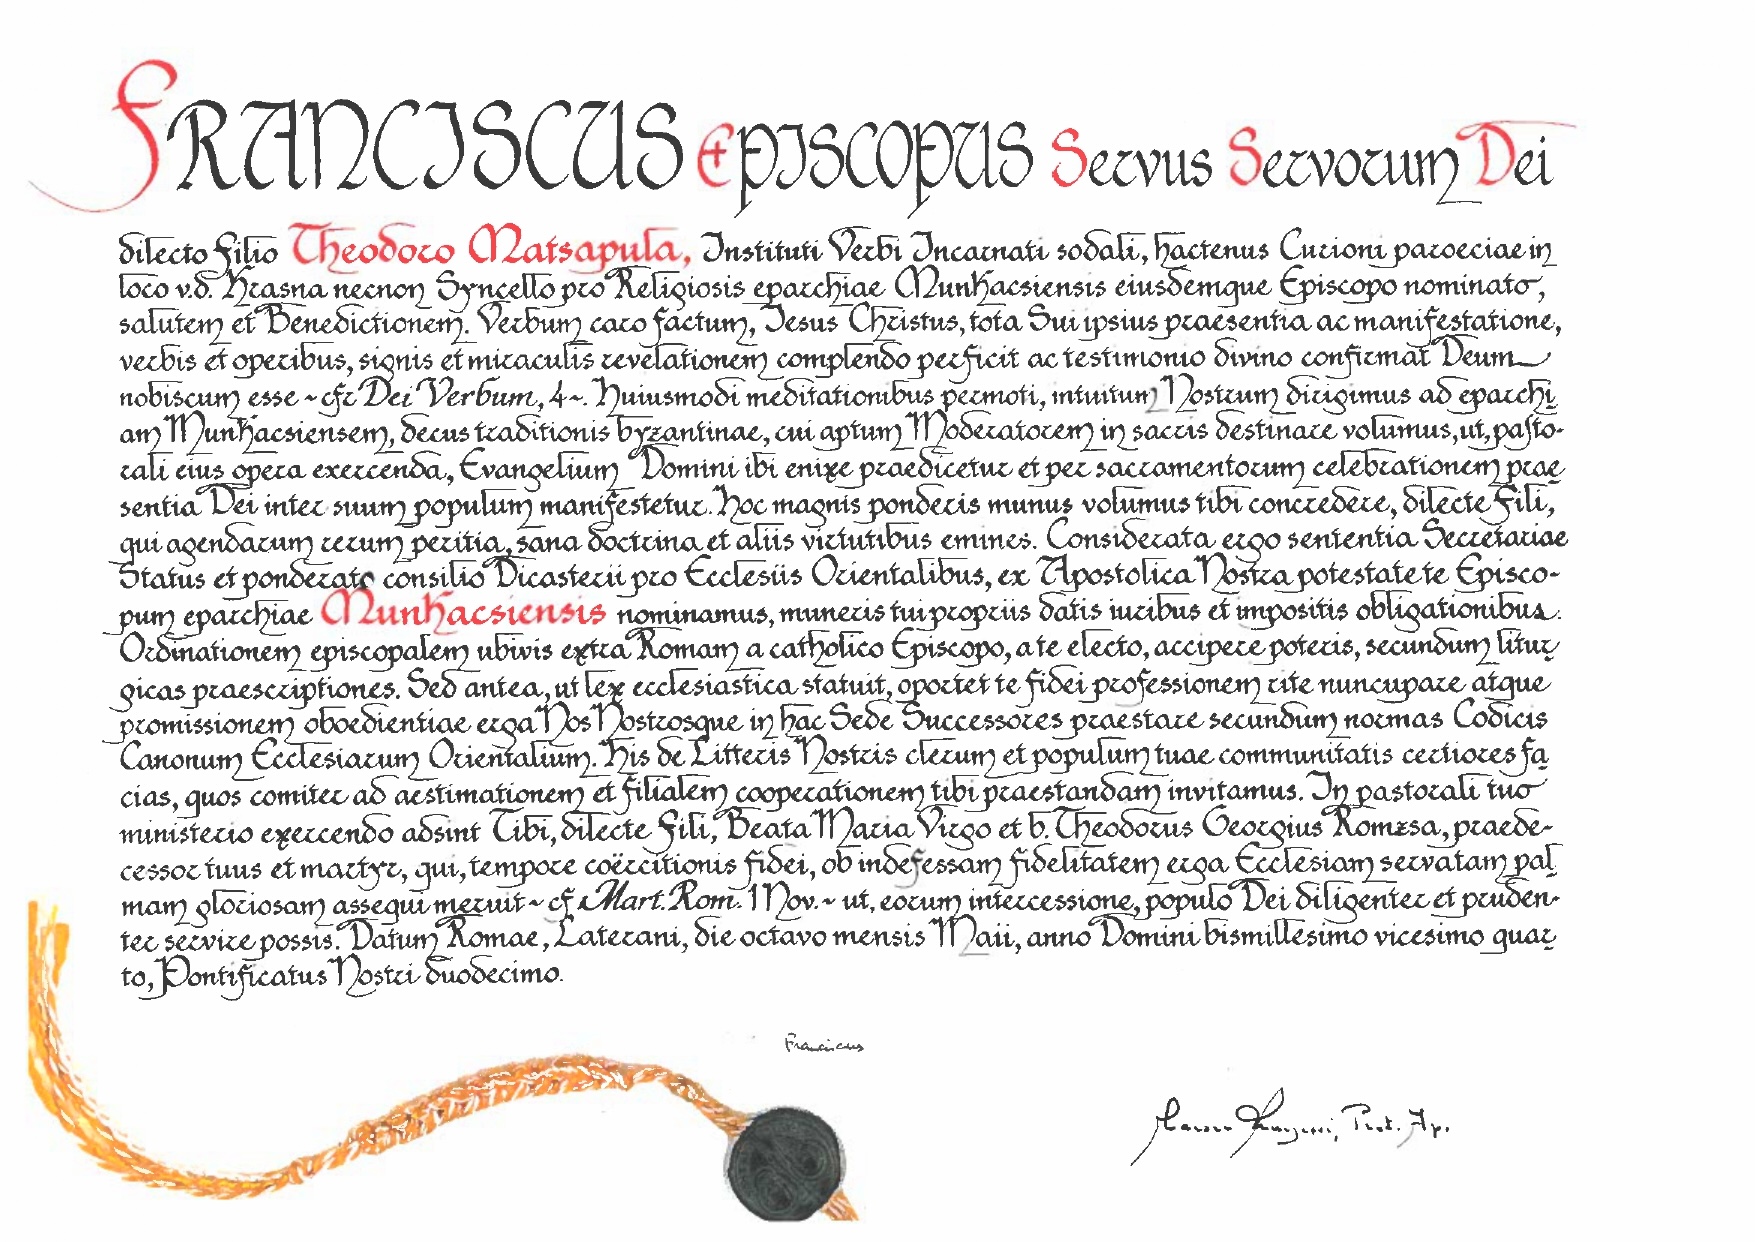 FRANCISCUS EPISCOPUS Servus Servorum Dei
dilecto Filio Theodoro Matsapula, Instituti Verbi Incarnati sodali, hactenus Curioni paroeciae in
loco v.d. Krasna necnon Syncello pro Religiosis eparchiae Munkacsiensis eiusdemque Episcopo nominato,
salutem et Benedictionem. Verbum caro factum, Jesus Christus, tota Sui ipsius praesentia ac manifestatione,
verbis et operibus, signis et miraculis revelationem complendo perficit ac testimonio divino confirmat Deum
nobiscum esse ~ cfr Dei Verbum, 4 ~. Huiusmodi meditationibus permoti, intuitum Nostrum dirigimus ad eparchi
am Munkacsiensem, decus traditionis byzantinae, cui aptum Moderatorem in sacris destinare volumus, ut, pasto-
rali eius opera exercenda, Evangelium Domini ibi enixe praedicetur et per sacramentorum celebrationem prae
sentia Dei inter suum populum manifestetur. Hoc magnis ponderis munus volumus tibi concredere, dilecte Fili,
qui agendarum rerum peritia, sana doctrina et aliis virtutibus emines. Considerata ergo sententia Secretariae
Status et ponderato consilio Dicasterii pro Ecclesiis Orientalibus, ex Apostolica Nostra potestate te Episco-
pum eparchiae Munkacsiensis nominamus, muneris tui propriis datis iuribus et impositis obligationibus.
Ordinationem episcopalem ubivis extra Romam a catholico Episcopo, a te electo, accipere poteris, secundum litur
gicas praescriptiones. Sed antea, ut lex ecclesiastica statuit, oportet te fidei professionem rite nuncupare atque
promissionem oboedientiae erga Nos Nostrosque in hac Sede Successores praestare secundum normas Codicis
Canonum Ecclesiarum Orientalium. His de Litteris Nostris clerum et populum tuae communitatis certiores fa
cias, quos comiter ad aestimationem et filialem cooperationem tibi praestandam invitamus. In pastorali tuo
ministerio exercendo adsint Tibi, dilecte Fili, Beata Maria Virgo et b. Theodorus Georgius Romzsa, praede-
cessor tuus et martyr, qui, tempore coërcitionis fidei, ob indefessam fidelitatem erga Ecclesiam servatam pal
mam gloriosam assequi meruit ~ cf Mart. Rom. 1 Nov. ~ ut, eorum intercessione, populo Dei diligenter et pruden-
ter servire possis. Datum Romae, Laterani, die octavo mensis Maii, anno Domini bismillesimo vicesimo quar
to, Pontificatus Nostri duodecimo.
Franciscus
Prot. Ap.